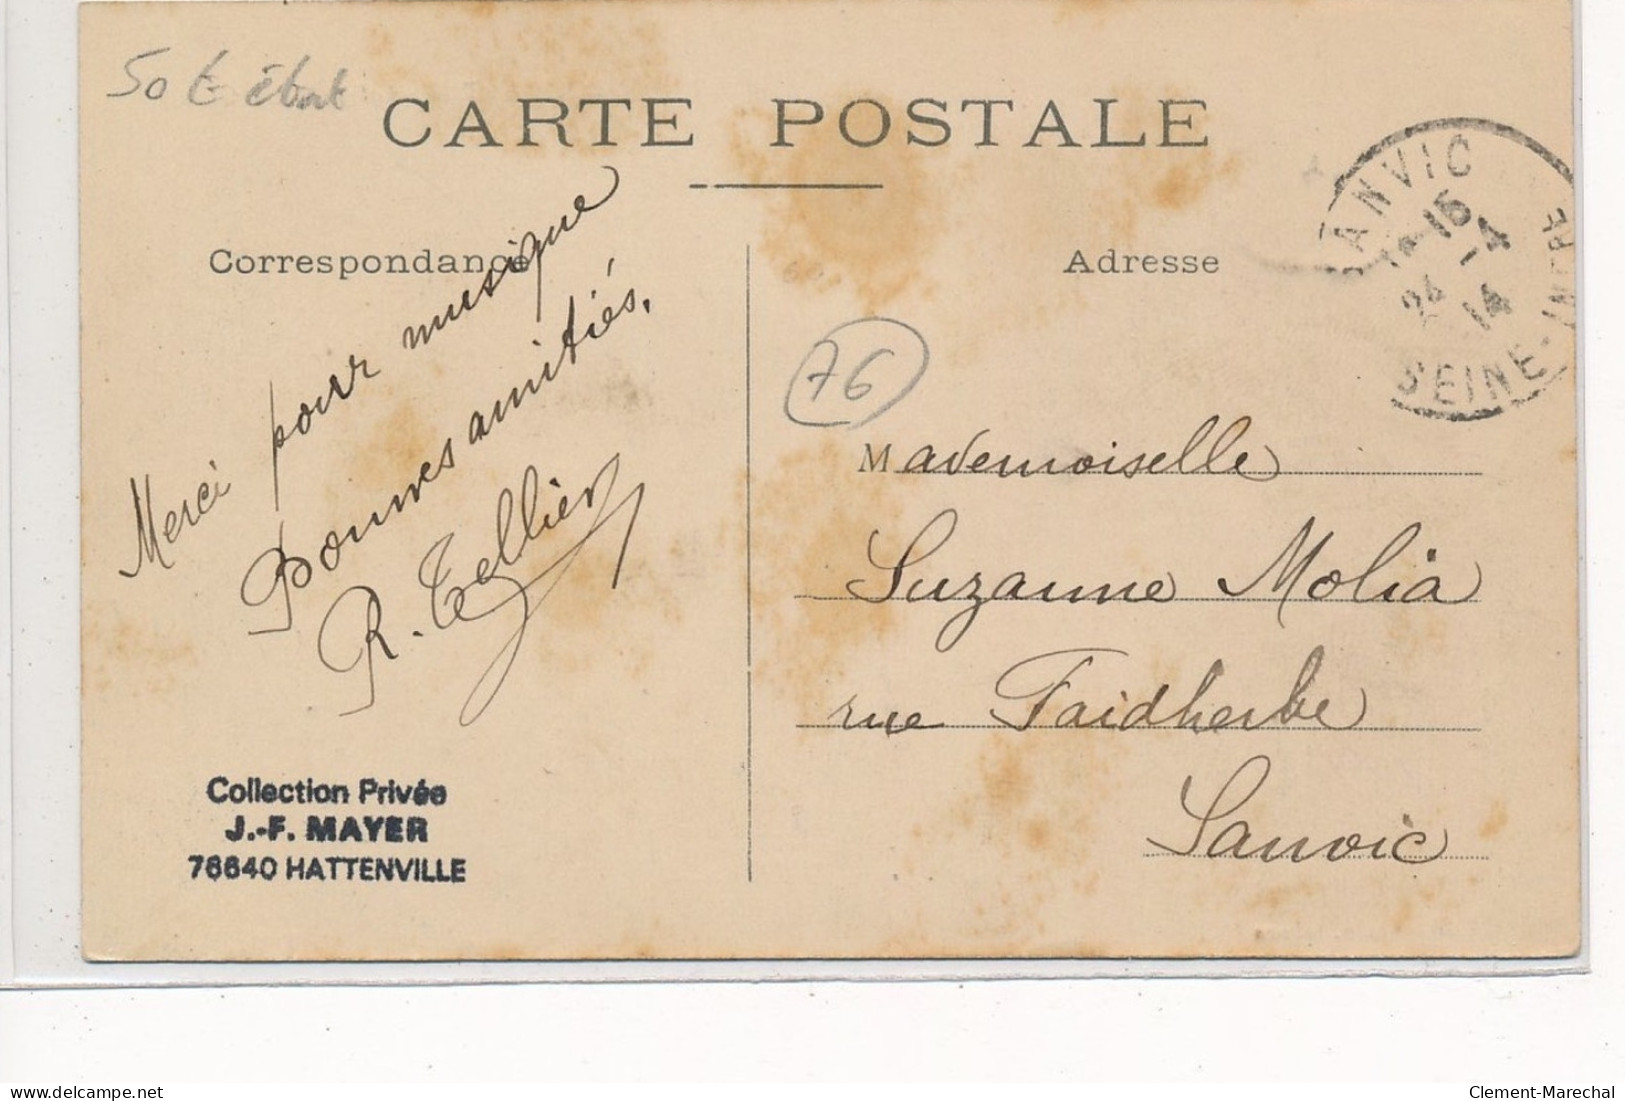 50 € état
CARTE POSTALE
Correspondance
Adresse
SANVIC
14-15
24 -4
14
SEINE-INFRE
76
Merci pour musique
Bonnes amitiés.
R. Tellier
Mademoiselle
Suzanne Molia
rue Faidherbe
Sanvic
Collection Privée
J.-F. MAYER
76640 HATTENVILLE
delcampe.net
Clement-Marechal